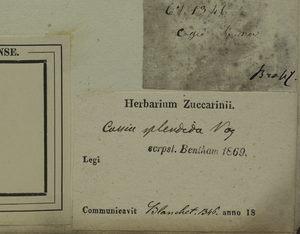 NSE.
Cassia
Brasil.
Herbarium Zuccarinii.
Cassia splendida Vog
scrpst. Bentham 1869.
Legi
Communicavit Blanchet. 1346. anno 18